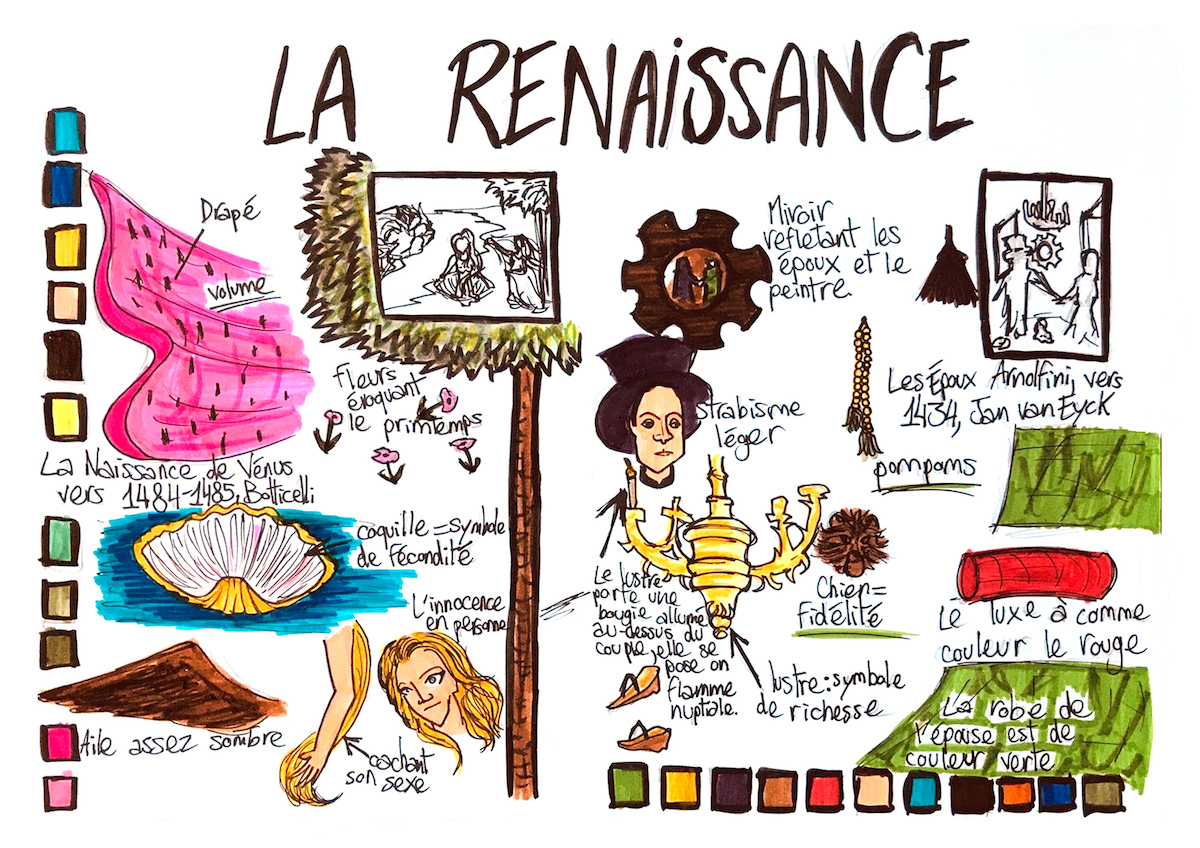 LA RENAISSANCE
Drapé
volume
fleurs
évoquant
le printemps
La Naissance de Vénus
vers 1484-1485, Botticelli
coquille = symbole
de fécondité
L'innocence
en personne
Aile assez sombre
cachant
son sexe
Miroir
reflétant les
époux et le
peintre.
Les Époux Arnolfini, vers
1434, Jan van Eyck
strabisme
léger
pompoms
Le lustre
porte une
bougie allumé
au-dessus du
couple, elle se
pose on
flamme
nuptiale.
lustre : symbole
de richesse
Chien =
fidélité
Le luxe à comme
couleur le rouge
La robe de
l'épouse est de
couleur verte